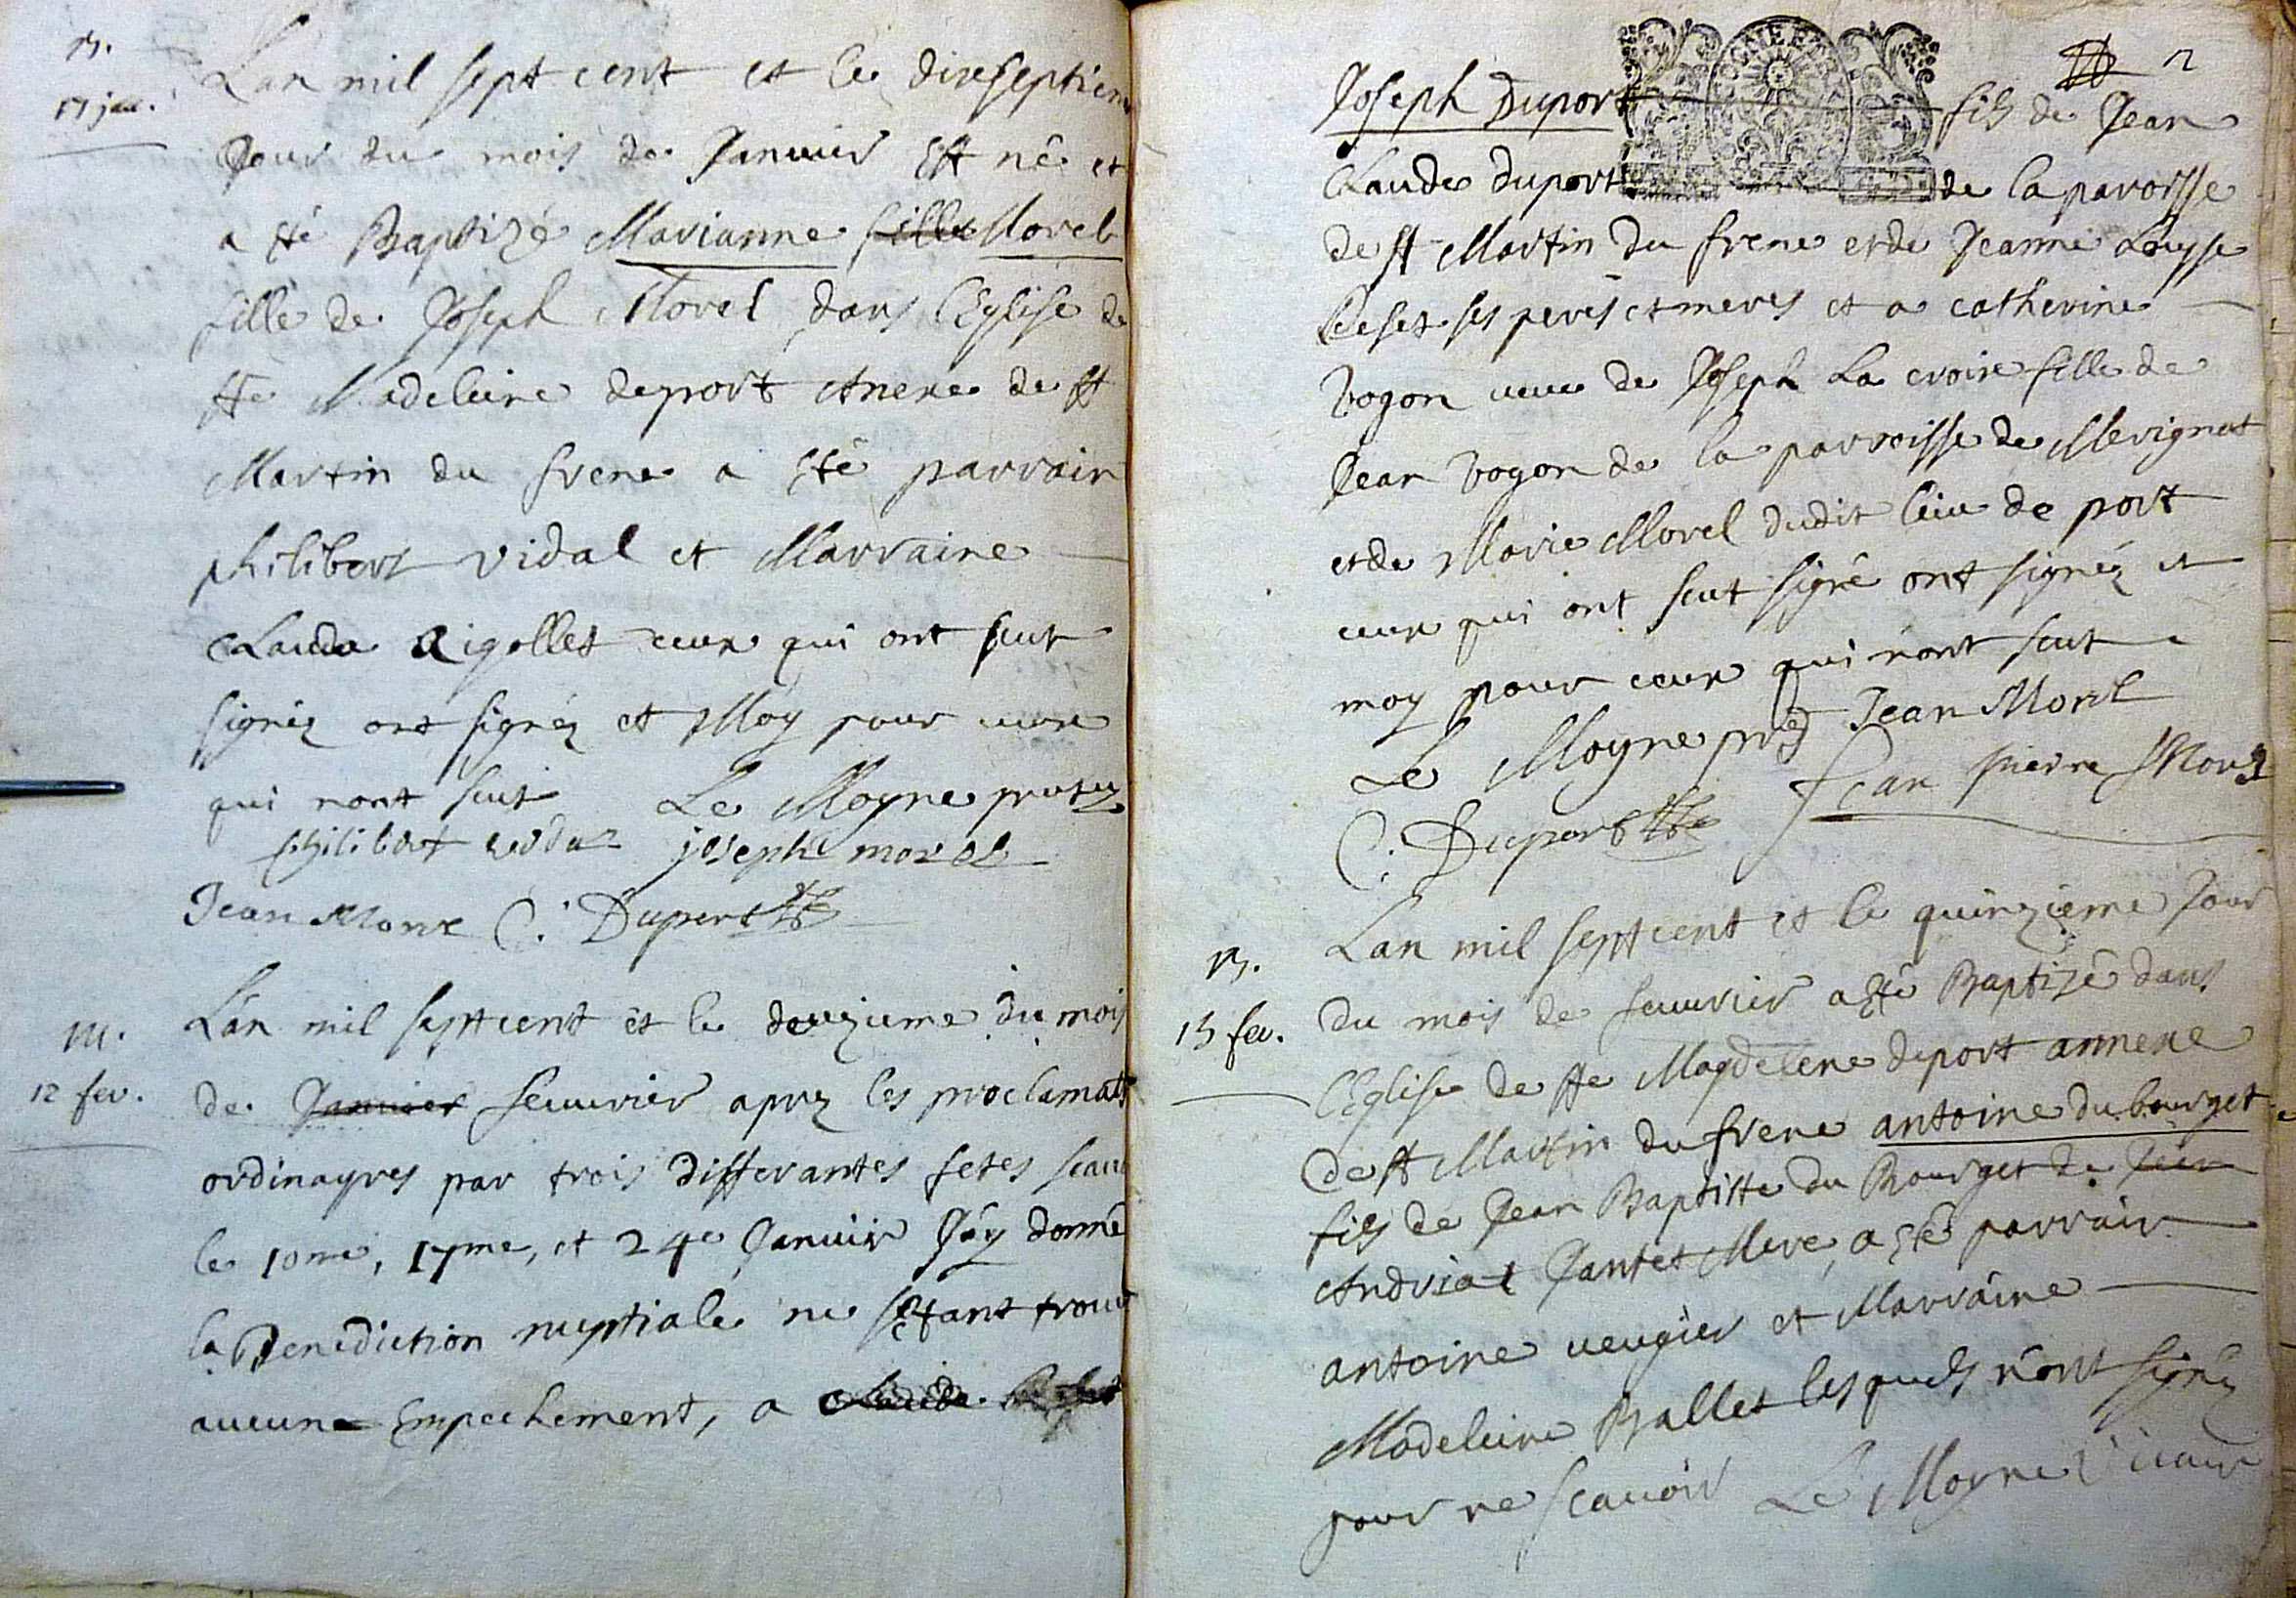 n.
17 jan.
Lan mil sept cent et le dixseptiem
Jour du mois de Janvier Est né et
a été Baptizé Marianne fille Morel
fille de Joseph Morel dans l'Eglise de
ste Madeleine deport Anexe de st
Martin du frene a été parrain
philibert vidal et Marraine
Clauda Rigollet ceux qui ont scut
signéz ont signéz et Moy pour ceux
qui nont scut Le Moyne
joseph morel
Jean Morel C. Duport
m.
12 fev.
Lan mil septcent et le deuzieme du mois
de Janvier feuvrier aprez les proclamat
ordinayres par trois differantes fetes scau
le 10me, 17me, et 24e Janvier J'ay donné
la Benediction nuptiale ne s'etant trouv
aucune Empechement, a
2
Joseph Duport fils de Jean
Claude duport de la paroisse
de st Martin du frene et de Jeanne Louyse
ses peres et meres et a catherine
bogon veuve de Joseph La croix fille de
Jean bogon de la parroisse de Merignat
et de Marie Morel dudit lieu de port
ceux qui ont scut signé ont signéz et
moy pour ceux qui n'ont scut
Le Moyne Jean Morel
Jean pierre Morel
C. Duport
n.
15 fev.
Lan mil septcent et le quinzieme Jour
du mois de feuvrier a été Baptizé dans
l'Eglise de ste Magdelene deport annexe
de st Martin du frene antoine du bourget
fils de Jean Baptiste du Bourget de
Andriat Jantet Mere, a été parrain
antoine veugier et Marraine
Madeleine Ballet lesquels n'ont signéz
pour ne scavoir Le Moyne vicaire